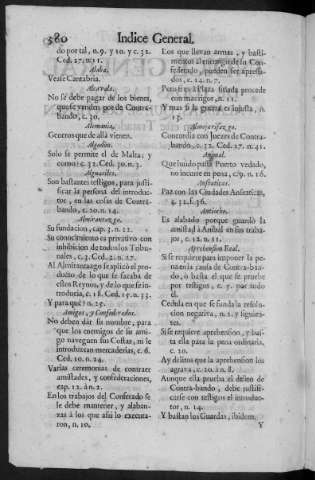 380 Indice General.
do portal, n. 9. y 10. y c. 32.
Ced. 27. n. 11.
Alaba.
Vease Cantabria.
Alcavala.
No se debe pagar de los bienes,
que se venden por de Contra-
bando, c. 30.
Alemania.
Generos que de allá vienen.
Algodon.
Solo se permite el de Malta; y
como: c. 32. Ced. 30. n. 3.
Alguaciles.
Son bastantes testigos, para justi-
ficar la persona del introduc-
tor, en las cosas de Contra-
bando, c. 20. n. 14.
Almirantazgo.
Su fundacion, cap. 3. n. 22.
Su conocimiento es privativo con
inhibicion de todos los Tribu-
nales, c. 3. Ced. 2. n. 27.
Al Almirantazgo se aplicò el pro-
ducto de lo que se sacaba de
estos Reynos, y de lo que se in-
troducia, c. 18. Ced. 15. n. 33.
Y para què? n. 25.
Amigos, y Confederados.
No deben dár su nombre, para
que los enemigos de su ami-
go naveguen sus Costas, ni le
introduzcan mercaderías, c. 6.
Ced. 10. n. 24.
Varias ceremonias de contraer
amistades, y confederaciones,
cap. 12. àn 2.
En los trabajos del Confederado se
le debe mantener, y alaban-
za à los que asi lo executa-
ron, n. 10.
Los que llevan armas, y basti-
mentos al enemigo de su Con-
federado, pueden ser apressa-
dos, c. 14. n. 7.
Pero si la Plaza sitiada procede
con sus amigos, n. 11.
Y mas si la guerra es injusta, n.
15.
Almojarifazgo.
Concordia con Jueces de Contra-
bando, c. 32. Ced. 27. n. 41.
Animal.
Que huido passa Puerto vedado,
no incurre en pena, c. 19. n. 16.
Anseaticas.
Paz con las Ciudades Anseaticas,
4. 32. f. 36.
Antiocho.
Es alabado porque guardò la
amistad à Anibal en sus traba-
jos, c. 12. n. 11.
Aprehension Real.
Si se requiere para imponer la pe-
na en la causa de Contra-ban-
do, ò basta el que se pruebe
por testigos, c. 5. por todo
el.
Cedula en que se funda la resolu-
cion negativa, n. 2. y siguien-
tes.
Si se requiere aprehension, y bas-
ta ella para la pena ordinaria,
c. 20.
Ay delitos que la aprehension los
agrava, c. 20. àn. 8.
Aunque ella prueba el delito de
Contra-bando, debe justifi-
carse con testigos el introduc-
tor, n. 14.
Y bastan los Guardas, ibidem.
Y